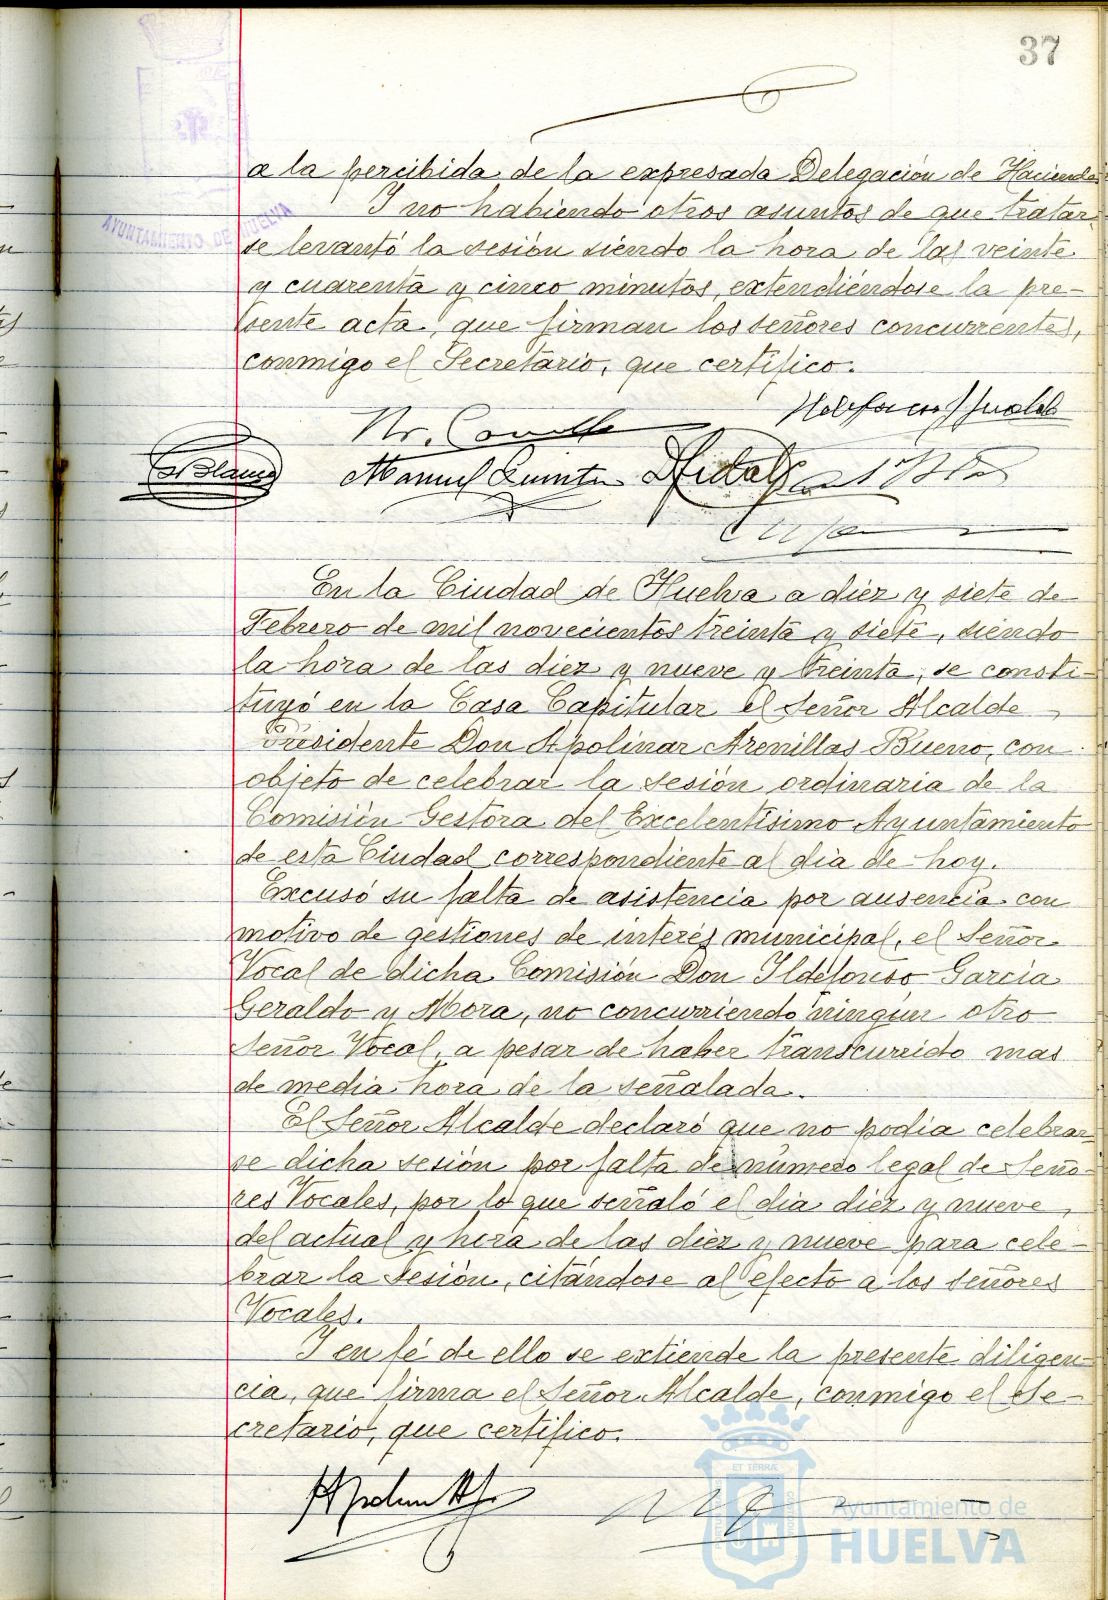 37
a la percibida de la expresada Delegación de Hacienda
Y no habiendo otros asuntos de que tratar
se levantó la sesión siendo la hora de las veinte
y cuarenta y cinco minutos, extendiéndose la pre-
sente acta, que firman los señores concurrentes,
conmigo el Secretario, que certifico.
AYUNTAMIENTO DE HUELVA
Blanco
Manuel Quinta
En la Ciudad de Huelva a diez y siete de
Febrero de mil novecientos treinta y siete, siendo
la hora de las diez y nueve y treinta, se consti-
tuyó en la Casa Capitular el Señor Alcalde
Presidente Don Apolinar Arenillas Bueno, con
objeto de celebrar la sesión ordinaria de la
Comisión Gestora del Excelentísimo Ayuntamiento
de esta Ciudad correspondiente al dia de hoy.
Excusó su falta de asistencia por ausencia con
motivo de gestiones de interés municipal, el Señor
Vocal de dicha Comisión Don Ildefonso García
Geraldo y Mora, no concurriendo ningún otro
Señor Vocal, a pesar de haber transcurrido mas
de media hora de la señalada.
El Señor Alcalde declaró que no podia celebrar-
se dicha sesión por falta de número legal de Seño-
res Vocales, por lo que señaló el dia diez y nueve,
del actual y hora de las diez y nueve para cele-
brar la sesión, citándose al efecto a los señores
Vocales.
Y en fé de ello se extiende la presente diligen-
cia, que firma el Señor Alcalde, conmigo el Se-
cretario, que certifico.
ET TERRÆ
Ayuntamiento de
HUELVA